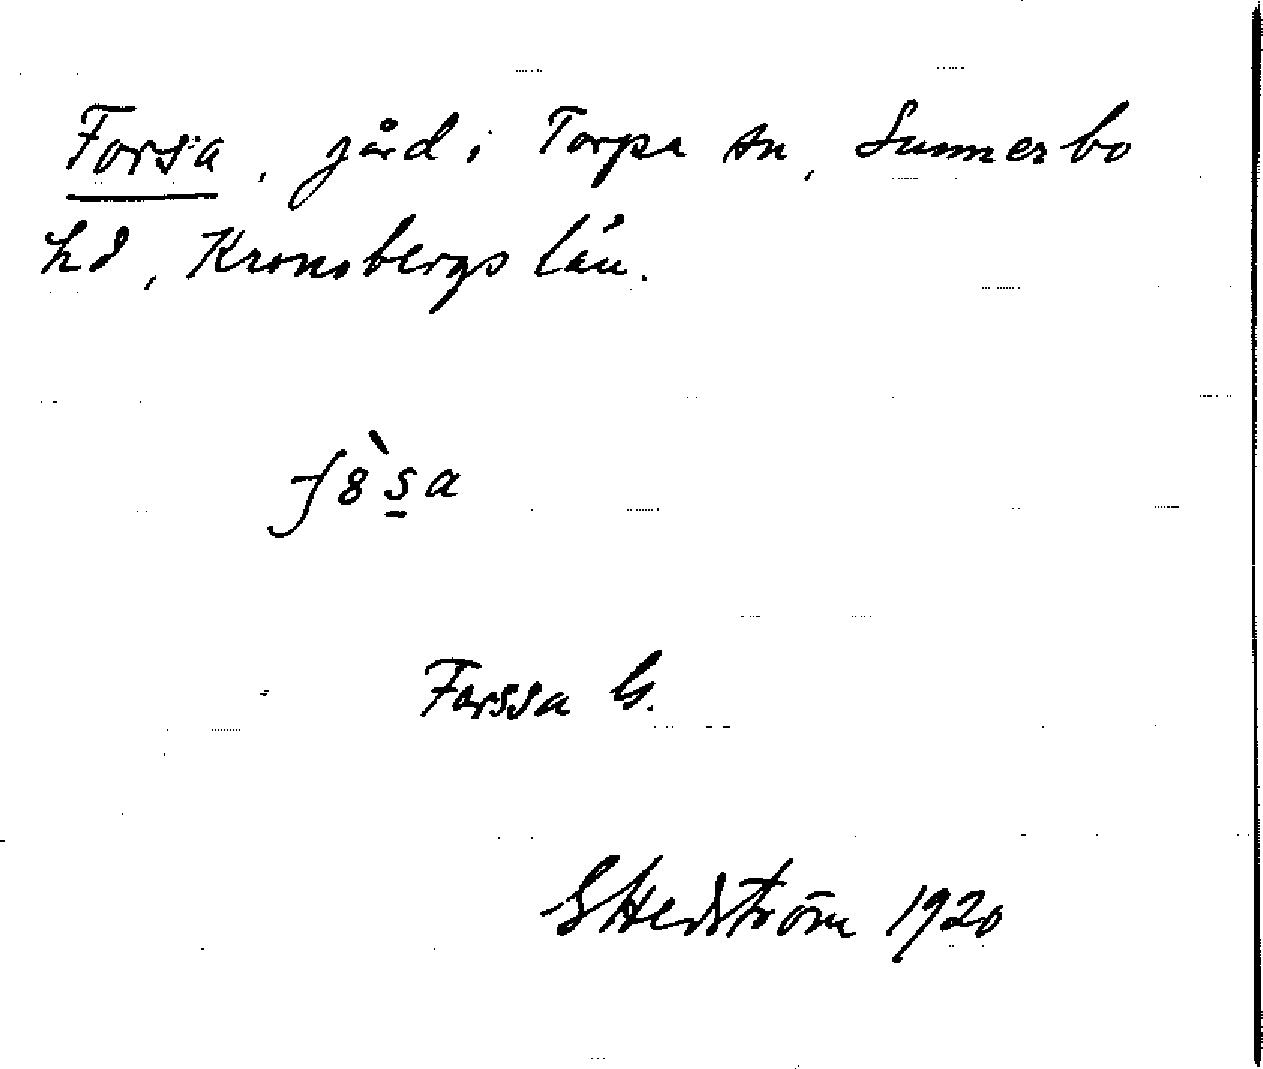 Forsa, gård i Torpa sn, Sunnerbo
hd, Kronobergs län.
f8̀s̲a
Forssa G.
G Hedström 1920